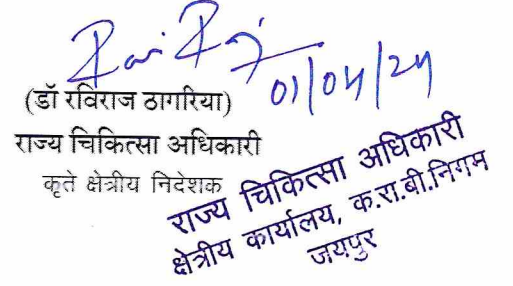 01/04/24
(डॉ रविराज ठागरिया)
राज्य चिकित्सा अधिकारी
कृते क्षेत्रीय निदेशक
राज्य चिकित्सा अधिकारी
क्षेत्रीय कार्यालय, क.रा.बी.निगम
जयपुर